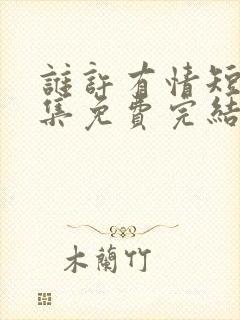 誰許有情短
集免費完結
木蘭竹